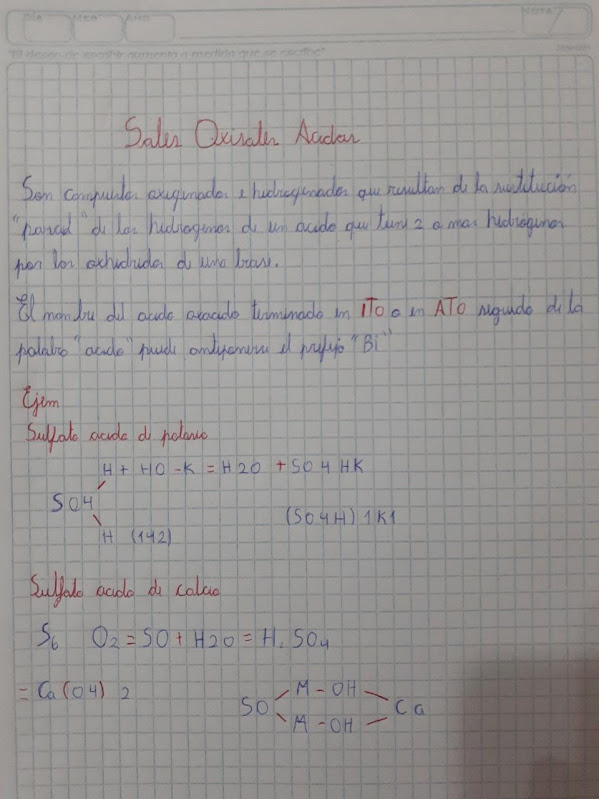 DÍA
MES
AÑO
NOTA
"El deseo de escribir aumenta a medida que se escribe"
Sales Oxisales Acidas
Son compuestos oxigenados e hidrogenados que resultan de la sustitución
"parcial" de los hidrogenos de un acido que tiene 2 o mas hidrogenos
por los oxhidridos de una base.
El nombre del acido oxacido terminado en ITO o en ATO seguido de la
palabra "acido" puede anteponerse el prefijo "Bi"
Ejem
Sulfato acido de potasio
H + HO - K = H2O + SO4 HK
SO4
(SO4H) 1K1
H (142)
Sulfato acido de calcio
S6 O2 = SO + H2O = H2 SO4
= Ca (O4) 2
H - OH
SO Ca
H - OH